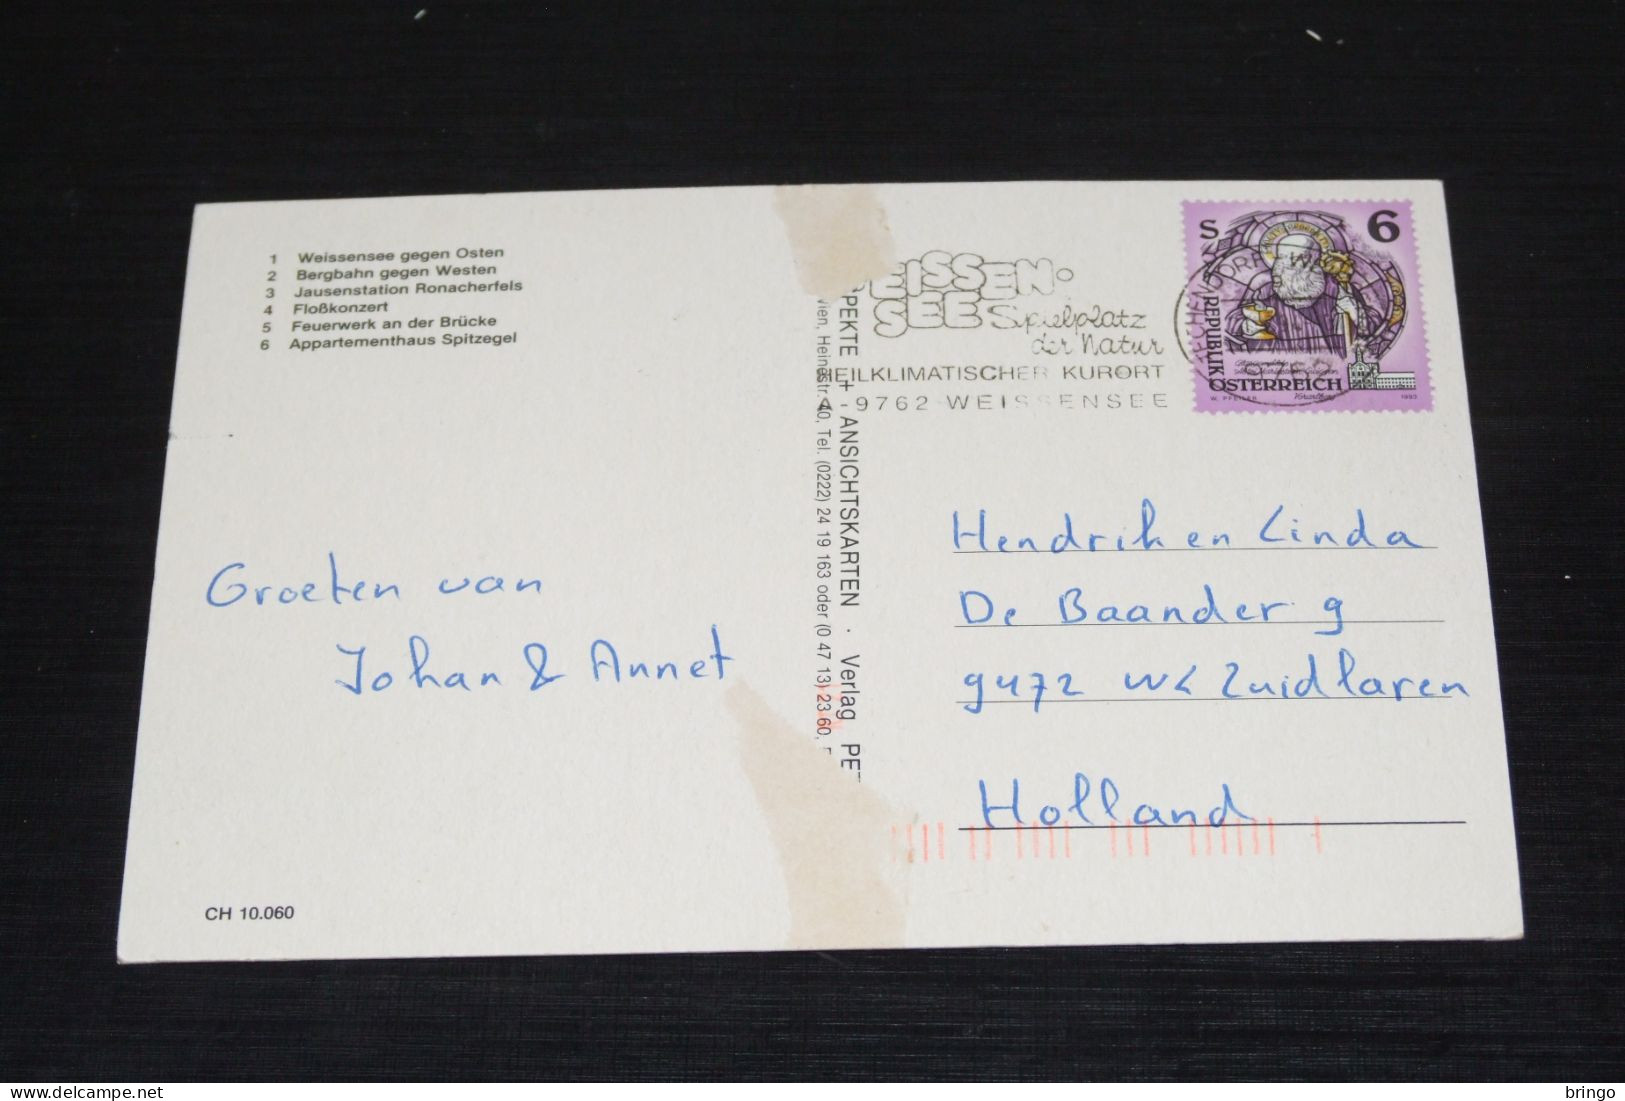 1 Weissensee gegen Osten
2 Bergbahn gegen Westen
3 Jausenstation Ronacherfels
4 Floßkonzert
5 Feuerwerk an der Brücke
6 Appartementhaus Spitzegel
Groeten van
Johan & Annet
CH 10.060
SPEKTE + ANSICHTSKARTEN · Verlag PET
Wien, Heinestr. 40, Tel. (0222) 24 19 163 oder (0 47 13) 23 60,
EISSEN·
SEE Spielplatz
der Natur
HEILKLIMATISCHER KURORT
A-9762 WEISSENSEE
S 6
REPUBLIK
ÖSTERREICH
W. PFEILER 1993
Hendrik en Linda
De Baander 9
9472 WL Zuidlaren
Holland
bringo